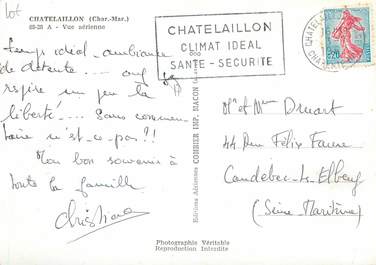 lot
CHATELAILLON (Char.-Mar.)
Vue aérienne
CHATELAILLON
CLIMAT IDEAL
SANTE - SECURITE
0,20
Temps idéal - ambiance
de détente... on
respire un peu la
liberté!... Sans commen-
taire n'est-ce-pas?!
Mon bon souvenir à
toute la famille
Christiane
Editions Aériennes COMBIER IMP. MACON
Mr et Mme Druart
44 Rue Félix Faure
Caudebec-les-Elbeuf
(Seine Maritime)
Photographie Véritable
Reproduction Interdite